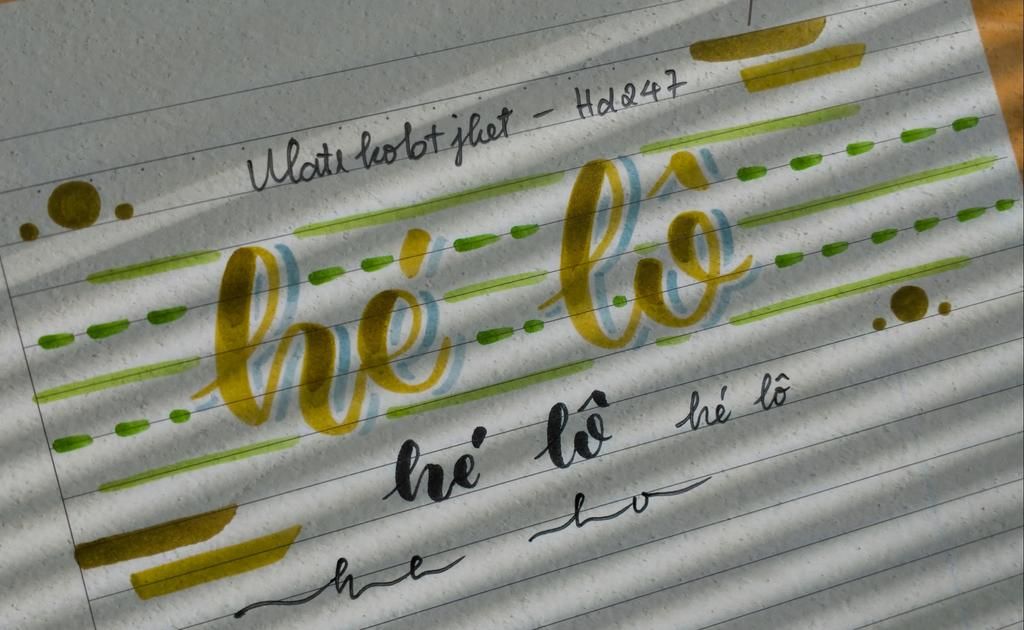 Ulatekobtjhet - Hd247
hé lô
hé lô hé lô
he ho